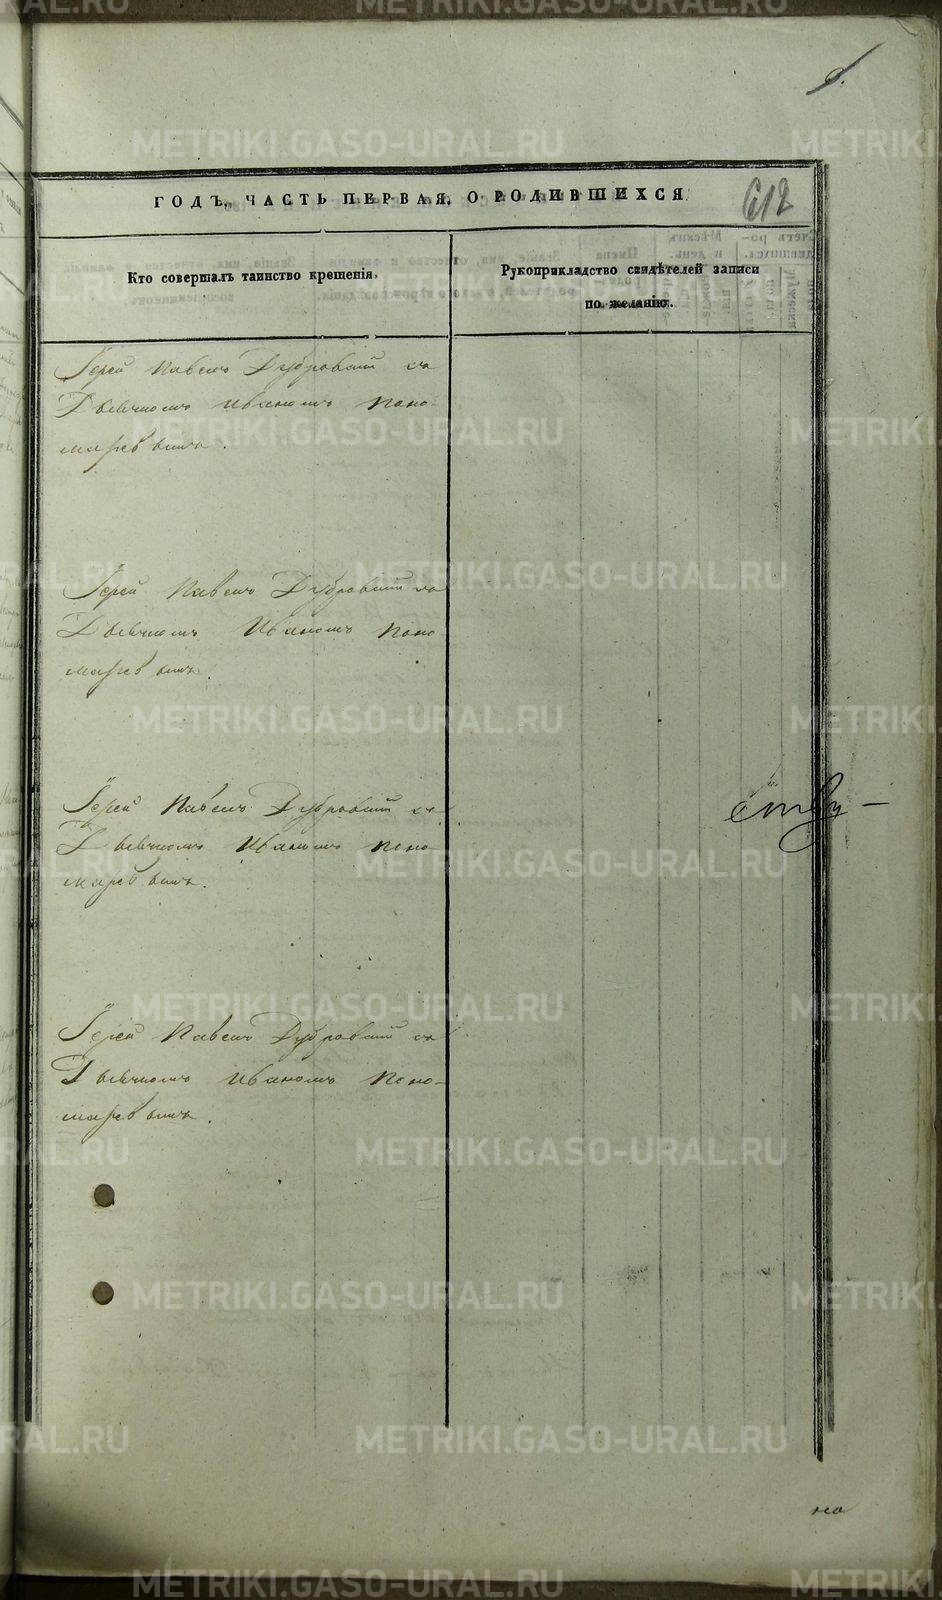 6.
ГОДЪ, ЧАСТЬ ПЕРВАЯ, О РОДИВШИХСЯ
612
Кто совершалъ таинство крещенія.
Рукоприкладство свидѣтелей записи
по желанію.
Іерей Павелъ Дубровинъ съ
Дьячкомъ Иваномъ Поно-
маревымъ.
Іерей Павелъ Дубровинъ съ
Дьячкомъ Иваномъ Поно
маревымъ.
Іерей Павелъ Дубровинъ съ
Дьячкомъ Иваномъ Поно-
маревымъ.
ству-
Іерей Павелъ Дубровинъ съ
Дьячкомъ Иваномъ Поно-
маревымъ.
METRIKI.GASO-URAL.RU